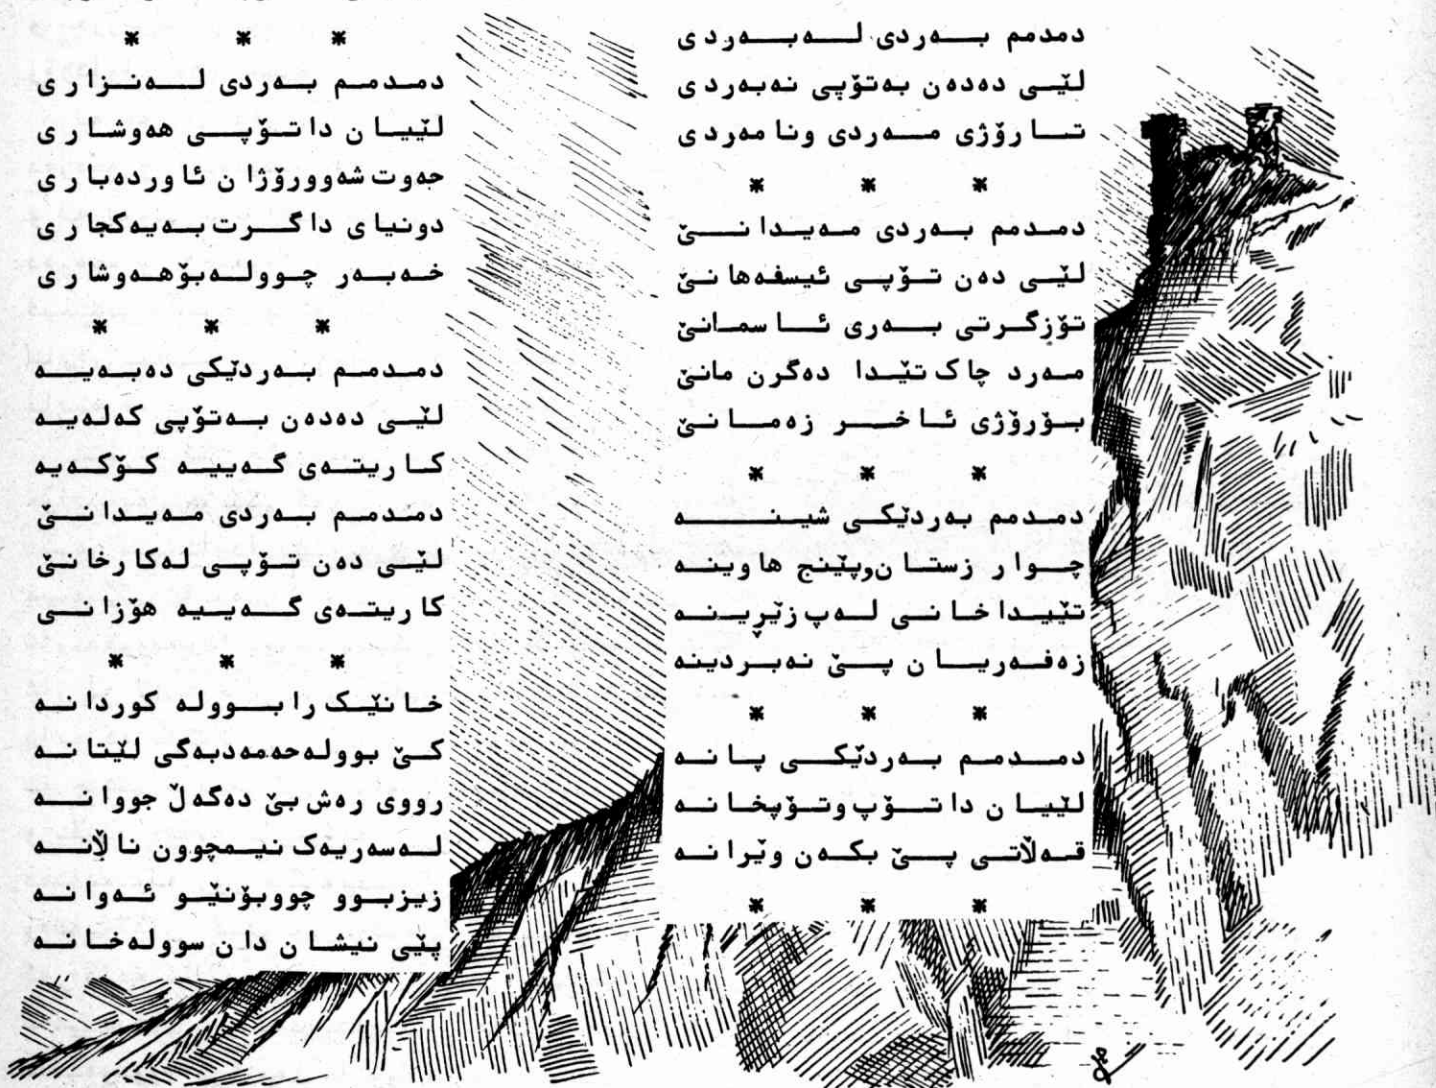 دمدمم بەردی لەبەردی
لێی دەدەن بەتۆپی نەبەردی
تارۆژی مەردی ونامەردی
* * *
دمدمم بەردی مەیدانێ
لێی دەن تۆپی ئیسفەهانێ
تۆزگرتی بەری ئاسمانێ
مەرد چاک تێدا دەگرن مانێ
بۆرۆژی ئاخر زەمانێ
* * *
دمدمم بەردێکی شینە
چوار زستان وپێنج هاوینە
تێیداخانی لەپ زێڕینە
زەفەریان پێ نەبردینە
* * *
دمدمم بەردێکی پانە
لێیان داتۆپ وتۆپخانە
قەڵاتی پێ بکەن وێرانە
* * *
* * *
دمدمم بەردی لەنزاری
لێیان داتۆپی هەوشاری
حەوت شەوورۆژان ئاوردەباری
دونیای داگرت بەیەکجاری
خەبەر چوولەبۆهەوشاری
* * *
دمدمم بەردێکی دەبەیە
لێی دەدەن بەتۆپی کەلەیە
کاریتەی گەییە کۆکەیە
دمدمم بەردی مەیدانێ
لێی دەن تۆپی لەکارخانێ
کاریتەی گەییە هۆزانی
* * *
خانێک رابوولە کوردانە
کێ بوولەحەمەدبەگی لێتانە
رووی رەش بێ دەگەڵ جووانە
لەسەریەک نیمچوون ناڵانە
زیزبوو چووبۆنێو ئەوانە
پێی نیشان دان سوولەخانە